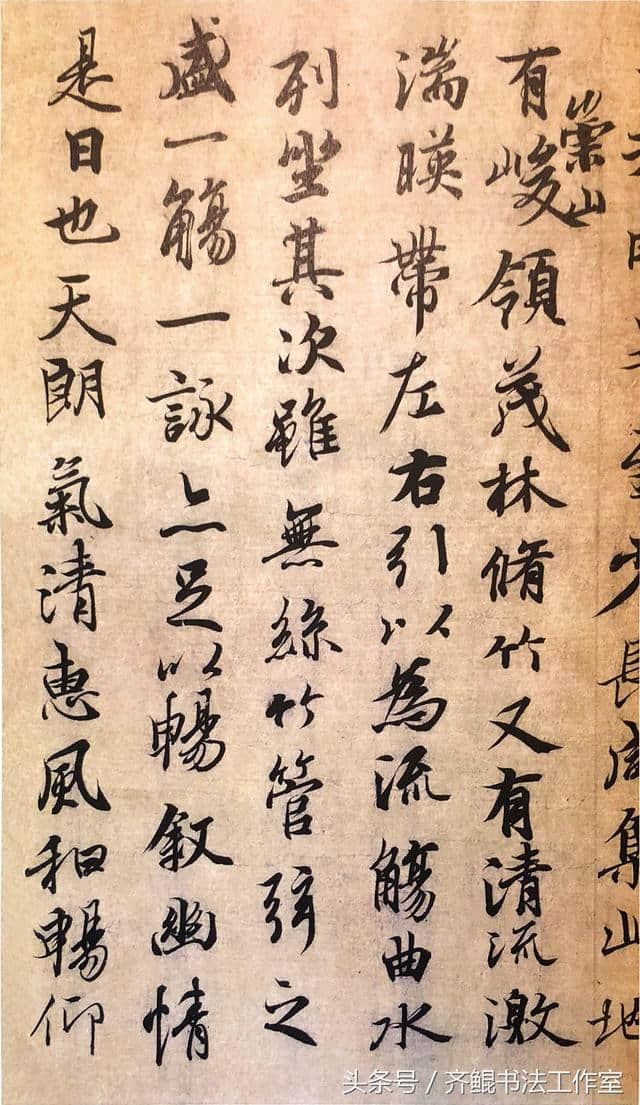 少長咸集此地
有崇山峻領茂林脩竹又有清流激
湍暎帶左右引以為流觴曲水
列坐其次雖無絲竹管弦之
盛一觴一詠亦足以暢叙幽情
是日也天朗氣清惠風和暢仰
头条号/齐鲲书法工作室